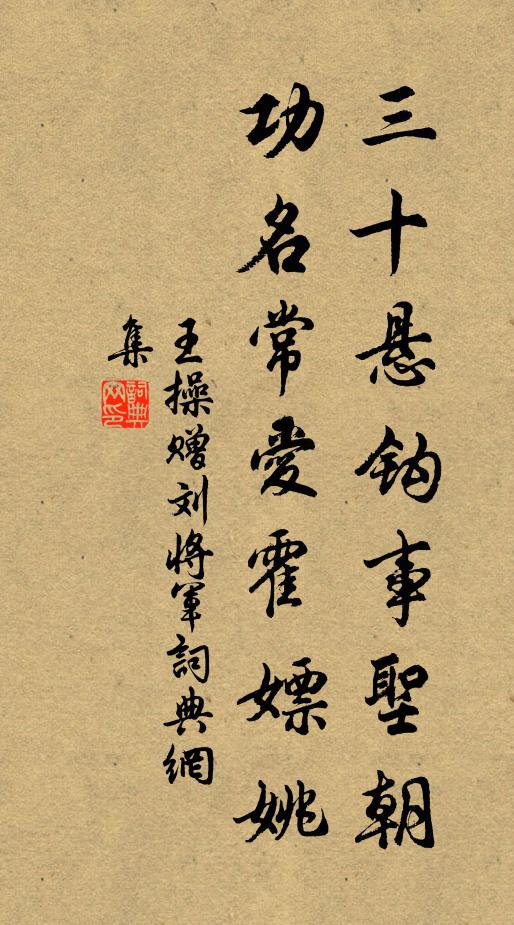 三十悬钩事聖朝
功名常愛霍嫖姚
王操赠刘将軍詞典網
集
詞典
网印